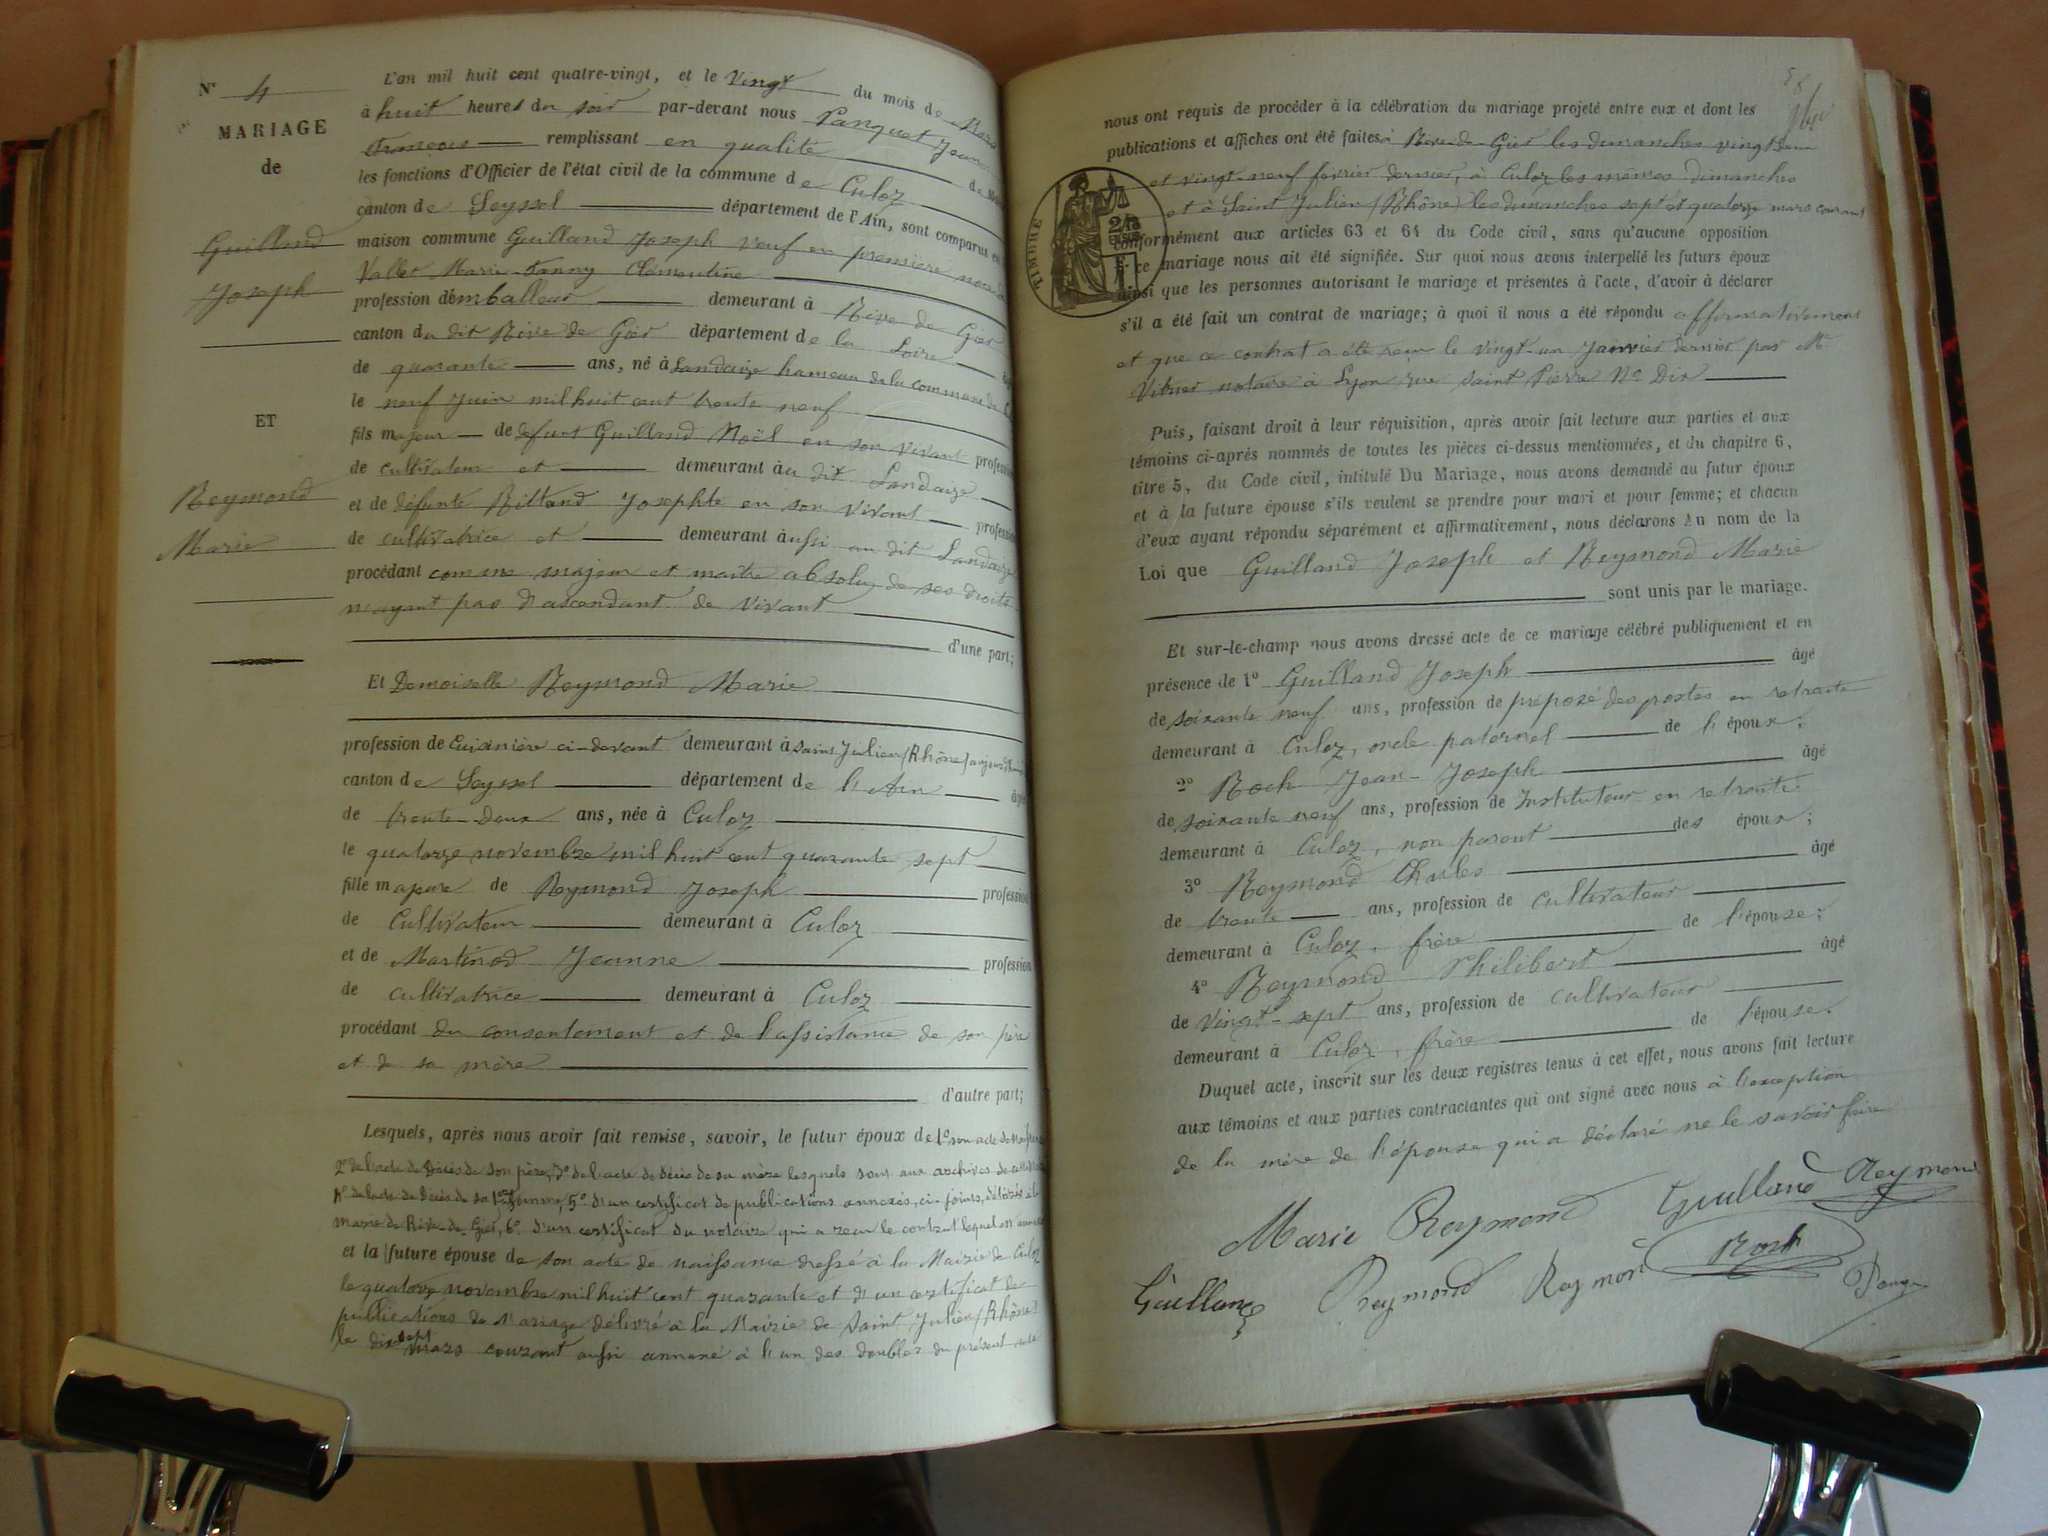 N° 4
MARIAGE
de
Guilland
Joseph
ET
Reymond
Marie
L'an mil huit cent quatre-vingt, et le Vingt du mois de Mars
à huit heures du soir par-devant nous Panquet Jean
François remplissant en qualité de
les fonctions d'Officier de l'état civil de la commune de Culoz
canton de Seyssel département de l'Ain, sont comparus en
maison commune Guilland Joseph veuf en première noce de
Vallet Marie Fanny Clémentine
profession d'emballeur demeurant à Rive de Gier
canton du dit Rive de Gier département de la Loire
de quarante ans, né à Landaize hameau de la commune de
le neuf Juin mil huit cent trente neuf
fils majeur de défunt Guilland Noël en son vivant profession
de cultivateur et demeurant au dit Landaize
et de défunte Billand Josephte en son vivant profession
de cultivatrice et demeurant aussi au dit Landaize
procédant comme majeur et maître absolu de ses droits
n'ayant pas d'ascendant de vivant
d'une part;
Et Demoiselle Reymond Marie
profession de Cuisinière ci-devant demeurant à Saint Julien (Rhône)
canton de Seyssel département de l'Ain âgée
de trente-deux ans, née à Culoz
le quatorze novembre mil huit cent quarante sept
fille majeure de Reymond Joseph profession
de Cultivateur demeurant à Culoz
et de Martinod Jeanne profession
de cultivatrice demeurant à Culoz
procédant du consentement et de l'assistance de son père
et de sa mère
d'autre part;
Lesquels, après nous avoir fait remise, savoir, le futur époux de 1° son acte de
2° de l'acte de Décès de son père, 3° de l'acte de Décès de sa mère lesquels sont aux archives de
4° de l'acte de Décès de sa 1ère femme, 5° d'un certificat de publications annexés, ci-joints, délivrés à la
mairie de Rive-de-Gier, 6° d'un certificat du notaire qui a reçu le contrat lequel est
et la future épouse de son acte de naissance dressé à la Mairie de Culoz
le quatorze novembre mil huit cent quarante et d'un certificat de
publications de Mariage délivré à la Mairie de Saint Julien (Rhône)
le dix sept mars courant aussi annexé à l'un des doubles du présent acte
58
nous ont requis de procéder à la célébration du mariage projeté entre eux et dont les
publications et affiches ont été faites à Rive-de-Gier les dimanches vingt deux
et vingt-neuf février dernier, à Culoz les mêmes dimanches
et à Saint Julien (Rhône) les dimanches sept et quatorze mars courant
TIMBRE
conformément aux articles 63 et 64 du Code civil, sans qu'aucune opposition
à ce mariage nous ait été signifiée. Sur quoi nous avons interpellé les futurs époux
ainsi que les personnes autorisant le mariage et présentes à l'acte, d'avoir à déclarer
s'il a été fait un contrat de mariage; à quoi il nous a été répondu affirmativement
et que ce contrat a été reçu le vingt-un Janvier dernier par Me
notaire à Lyon rue Saint Pierre No Dix
Puis, faisant droit à leur réquisition, après avoir fait lecture aux parties et aux
témoins ci-après nommés de toutes les pièces ci-dessus mentionnées, et du chapitre 6,
titre 5, du Code civil, intitulé Du Mariage, nous avons demandé au futur époux
et à la future épouse s'ils veulent se prendre pour mari et pour femme; et chacun
d'eux ayant répondu séparément et affirmativement, nous déclarons au nom de la
Loi que Guilland Joseph et Reymond Marie
sont unis par le mariage.
Et sur-le-champ nous avons dressé acte de ce mariage célébré publiquement et en
présence de 1° Guilland Joseph âgé
de soixante neuf ans, profession de préposé des postes en retraite
demeurant à Culoz, oncle paternel de l'époux;
2° Roch Jean-Joseph âgé
de soixante neuf ans, profession de Instituteur en retraite
demeurant à Culoz, non parent des époux;
3° Reymond Charles âgé
de trente ans, profession de cultivateur
demeurant à Culoz, frère de l'épouse;
4° Reymond Philibert âgé
de vingt-sept ans, profession de cultivateur
demeurant à Culoz, frère de l'épouse.
Duquel acte, inscrit sur les deux registres tenus à cet effet, nous avons fait lecture
aux témoins et aux parties contractantes qui ont signé avec nous à l'exception
de la mère de l'épouse qui a déclaré ne le savoir faire
Marie Reymond Guilland Reymond
Guilland Reymond Reymond Roch